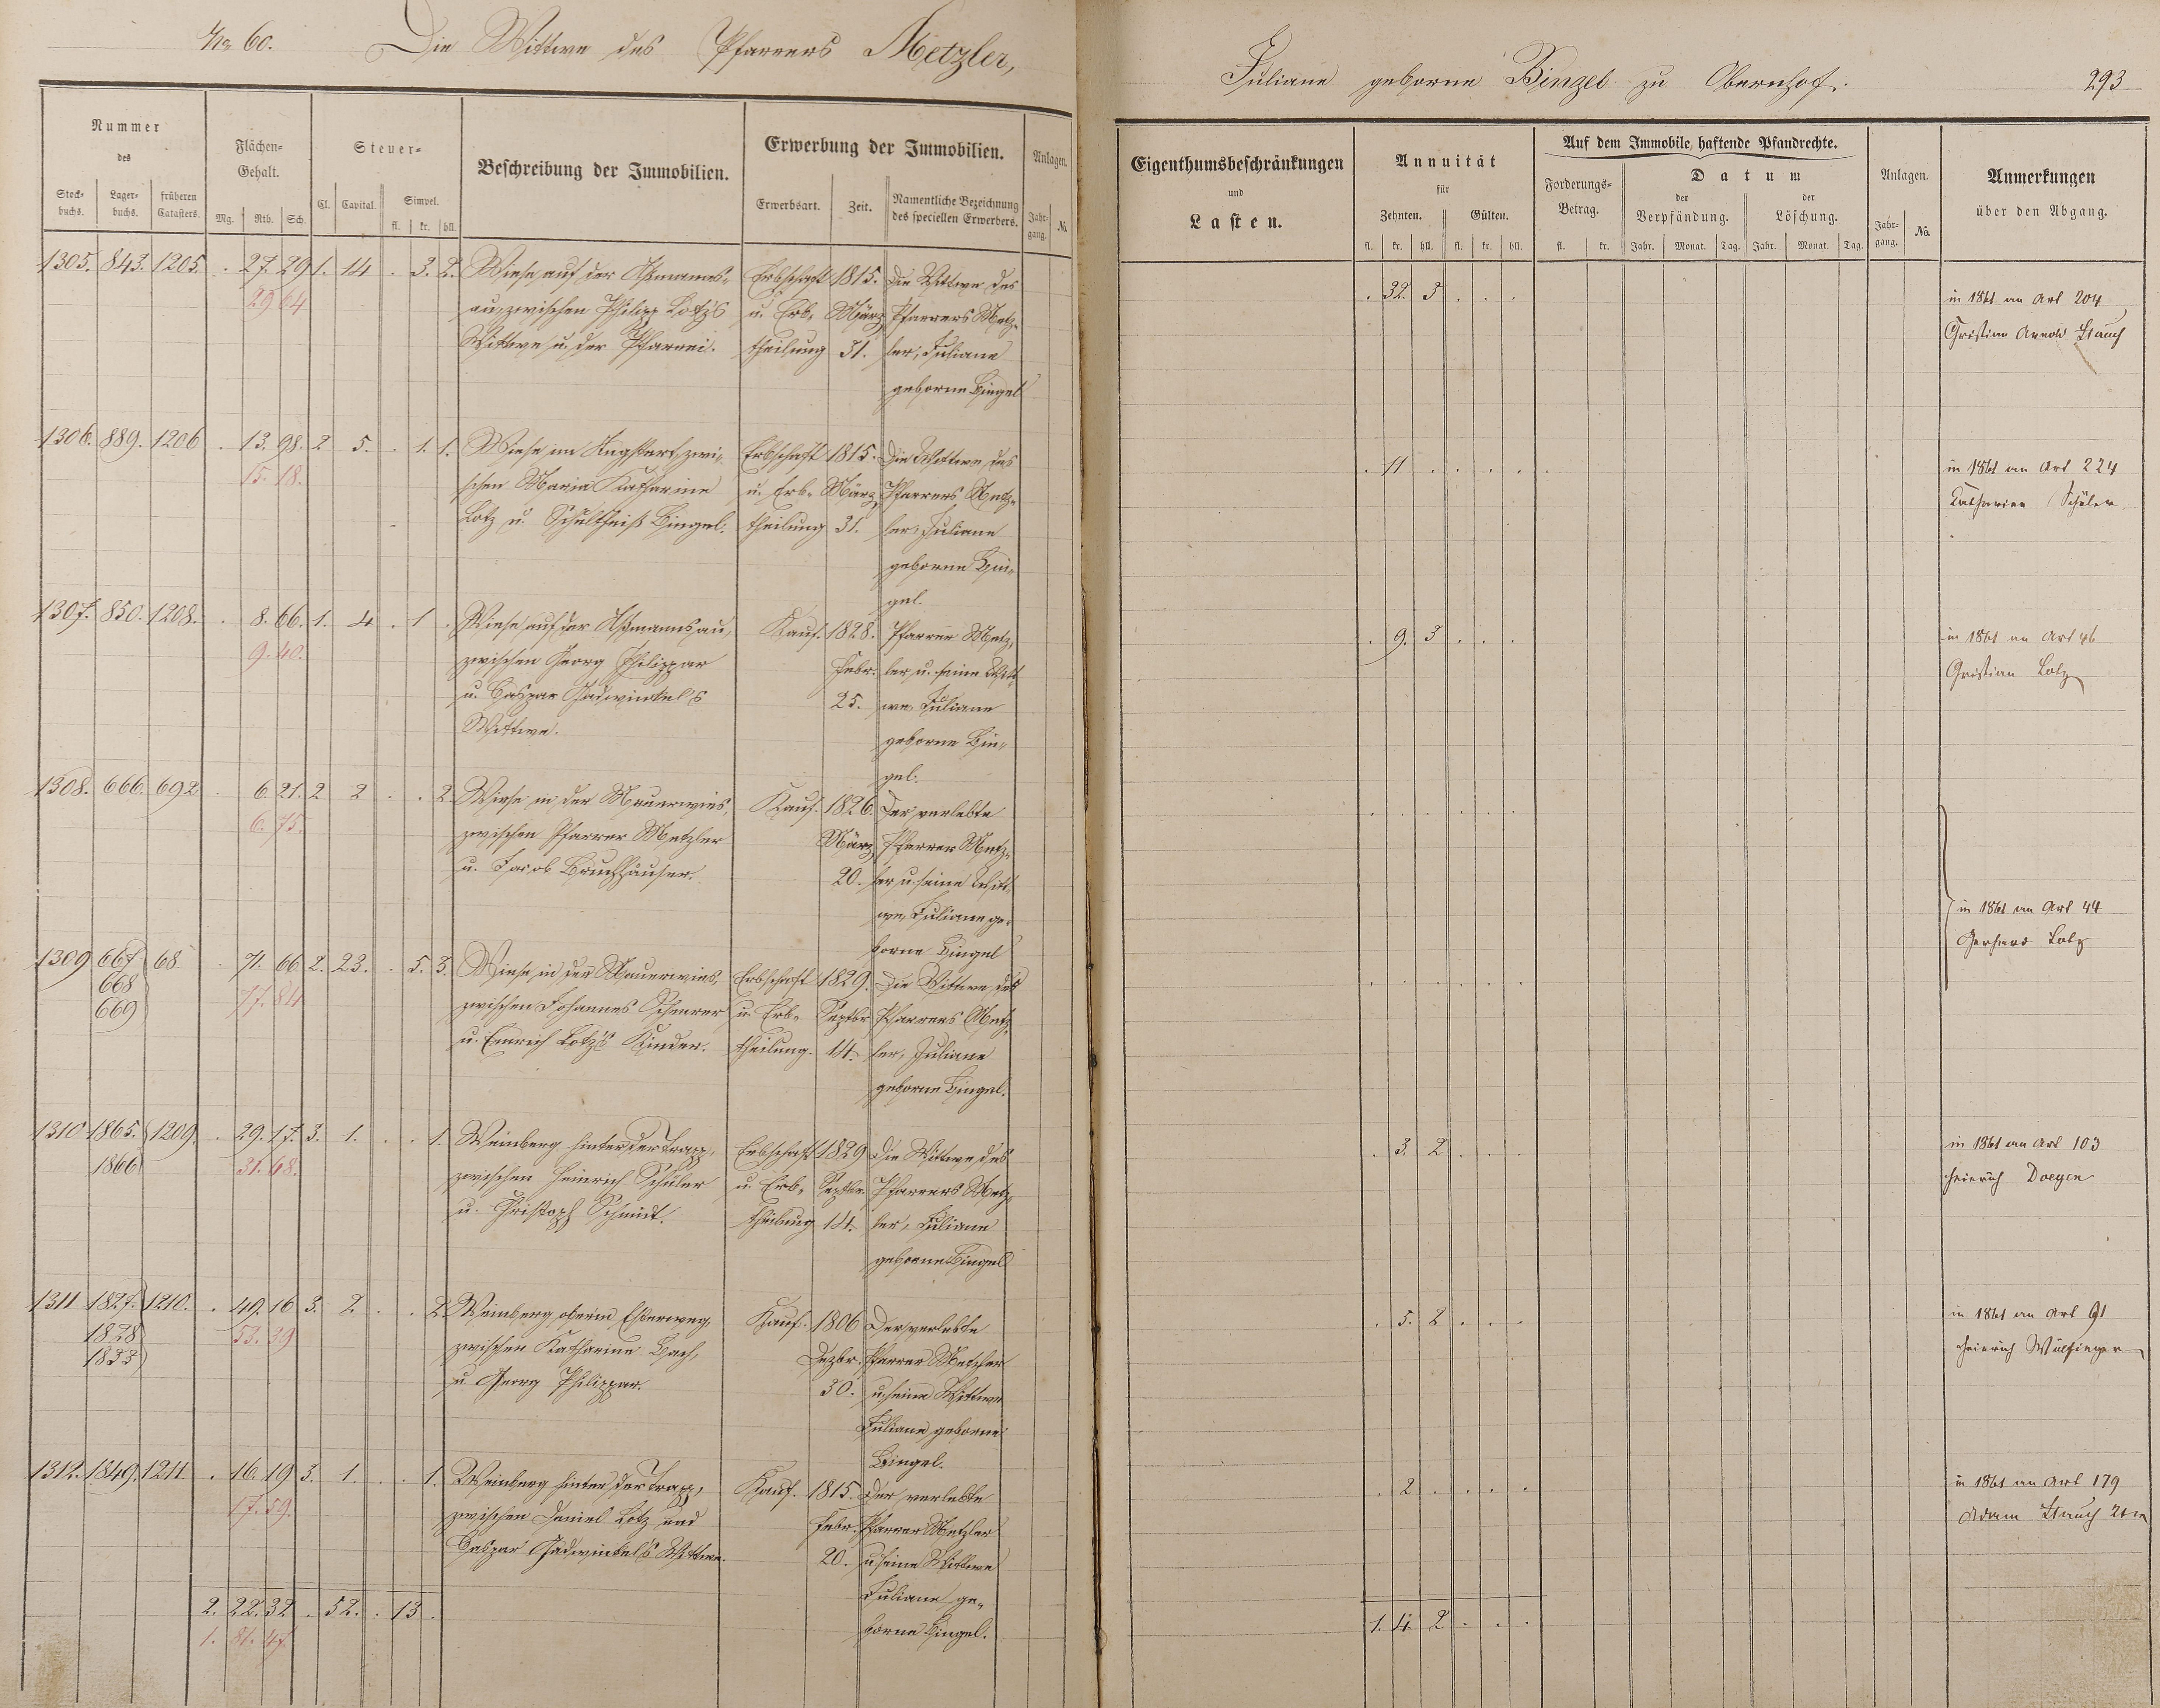 No 60. Die Wittwe des Pfarrers Metzler,
Juliane geborne Bingel zu Obernhof. 293
Nummer
des
Stock-
buchs. Lager-
buchs. früheren
Catasters.
Flächen-
Gehalt.
Mg. Rth. Sch.
Steuer-
Cl. Capital. Simpel.
fl. kr. hll.
Beschreibung der Immobilien.
Erwerbung der Immobilien.
Erwerbsart. Zeit. Namentliche Bezeichnung
des speciellen Erwerbers.
Anlagen.
Jahr-
gang. No.
Eigenthumsbeschränkungen
und
Lasten.
Annuität
für
Zehnten. Gülten.
fl. kr. hll. fl. kr. hll.
Auf dem Immobile haftende Pfandrechte.
Forderungs-
Betrag.
fl. kr.
Datum
der
Verpfändung.
der
Löschung.
Jahr. Monat. Tag. Jahr. Monat. Tag.
Anlagen.
Jahr-
gang. No.
Anmerkungen
über den Abgang.
1305. 843. 1205. . 27. 29 1. 14 . 3. 2.
29 64
Wiese auf der Aßmanns-
au, zwischen Philipp Lotz's
Wittwe u. der Pfarrei.
Erbschaft
u. Erb-
theilung
1815.
März
31.
Die Wittwe des
Pfarrers Metz-
ler, Juliane
geborne Bingel
. 32. 3 . . .
in 1861 an Art 204
Christian Arnold Stauch
1306. 889. 1206 . 13. 98. 2 5. . 1. 1.
15. 18.
Wiese im zwi-
schen Maria Katharine
Lotz u. Schultheiß Bingel.
Erbschaft
u. Erb-
theilung
1815.
März
31.
Die Wittwe des
Pfarrers Metz-
ler, Juliane
geborne Bin-
gel.
. 11 . . . .
in 1861 an Art 224
Katharina Schüler
1307. 850. 1208. . 8. 66. 1. 4 . 1 .
9. 40.
Wiese auf der Aßmannsau,
zwischen Georg Philippar
u. Caspar Hadwinkel's
Wittwe.
Kauf.
1828.
Febr.
25.
Pfarrer Metz-
ler u. seine Witt-
we Juliane
geborne Bin-
gel.
. 9. 3 . . .
in 1861 an Art 46
Christian Lotz
1308. 666. 692 . 6. 21. 2 2 . . 2.
6. 75.
Wiese in der Mauerwies,
zwischen Pfarrer Metzler
u. Jacob Bruchhäuser.
Kauf.
1826.
März
20.
Der verlebte
Pfarrer Metz-
ler u. seine Witt-
we, Juliane ge-
borne Bingel
. . . . . .
in 1861 an Art 44
Gerhard Lotz
1309 667 68 . 71. 66 2. 23. . 5. 3.
668
669
77. 84
Wiese in der Mauerwies,
zwischen Johannes Scheurer
u. Emrich Lotz's Kinder.
Erbschaft
u. Erb-
theilung.
1829.
Septbr
14.
Die Wittwe des
Pfarrers Metz-
ler, Juliane
geborne Bingel.
. . . . . .
1310 1865. 1209. . 29. 17. 3. 1. . . 1.
1866
31. 68.
Weinberg hinter der Trapp,
zwischen Heinrich Schüler
u. Christoph Schmidt.
Erbschaft
u. Erb-
theilung
1829
Septbr.
14.
Die Wittwe des
Pfarrers Metz-
ler, Juliane
geborne Bingel
. 3. 2 . . .
in 1861 an Art 103
Heinrich Doegen
1311 1827. 1210. . 49. 16 3. 2. . . 2.
1828
1833
53. 39
Weinberg oberm Eßerweg,
zwischen Katharine Bach,
u. Georg Philippar.
Kauf.
1806
Dezbr.
30.
Der verlebte
Pfarrer Metzler
u. seine Wittwe
Juliane geborne
Bingel.
. 5. 2 . . .
in 1861 an Art 91
Heinrich Wülfinger
1312. 1849. 1211. . 16. 19 3. 1. . . 1.
17. 59.
Weinberg hinter der Trapp,
zwischen Daniel Lotz und
Caspar Hadwinkel's Wittwe.
Kauf.
1815.
Febr.
20.
Der verlebte
Pfarrer Metzler
u. seine Wittwe
Juliane ge-
borne Bingel.
. 2 . . . .
in 1861 an Art 179
Adam Stauch 2ter
2. 22. 32 . 52. . 13 .
1. 81. 47.
1. 4. 2 . . .